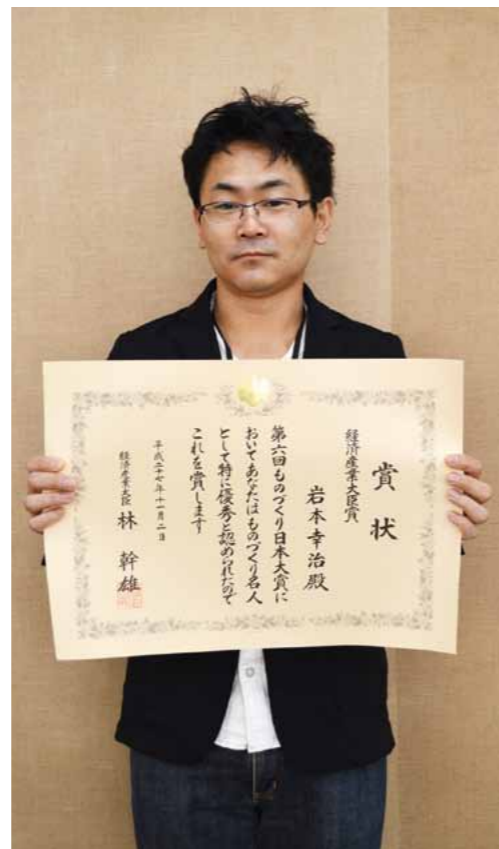 賞状
経済産業大臣賞
岩本幸治殿
第六回ものづくり日本大賞に
おいてあなたはものづくり名人
として特に優秀と認められたので
これを賞します
平成二十七年十一月二日
経済産業大臣 林幹雄